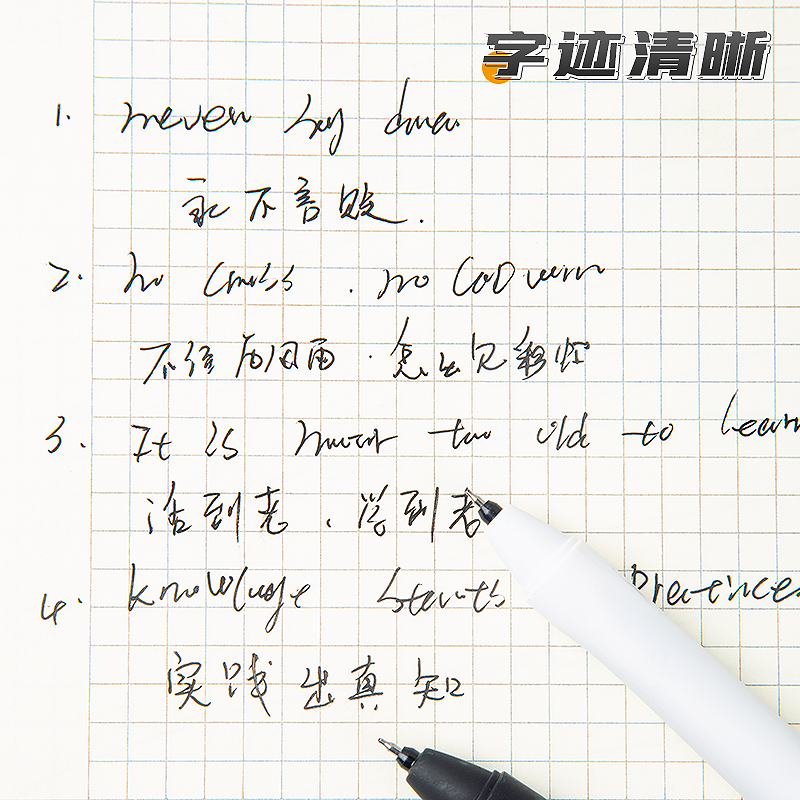 字迹清晰
1. never say
永不言败.
2. no cross . no
不经历风雨.怎么见彩虹
3. It is never too old to learn
活到老、学到老
4. knowledge starts practice
实践出真知